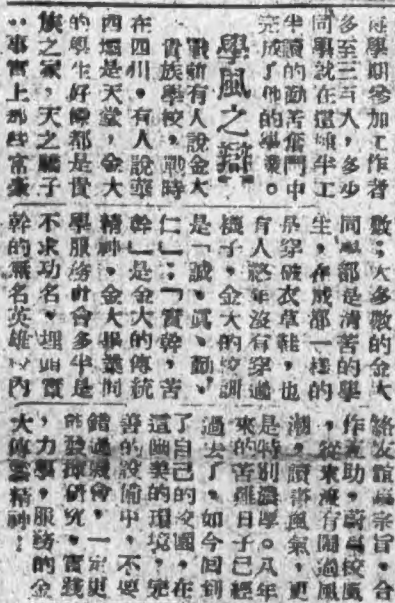 每學期參加工作者
多至三百人，多少
同學就在這種半工
半讀的勤苦奮鬥中
完成了他的學業。
學風之辯
戰前有人說金大
貴族學校，戰時
在四川，有人說華
西壩是天堂，金大
的學生好像都是貴
族之家，天之驕子
…事實上那些富豪
數；大多數的金大
同學都是清苦的學
生，在成都一樣的
是穿破衣草鞋，也
有人終年沒有穿過
襪子，金大的校訓
是「誠、真、勤、
仁」；「實幹，苦
幹」是金大的傳統
精神，金大畢業同
學服務社會多半是
不求功名，埋頭實
幹的無名英雄，內
絡友誼為宗旨，合
作互助，蔚為校風
，從來沒有鬧過風
潮，讀書風氣，更
是特別濃厚。八年
來的苦難日子已經
過去了，如今回到
了自己的校園，在
這個美的環境，完
善的設備中，不要
錯過機會，一定更
能發揮研究，實踐
，力學，服務的金
大傳統精神！